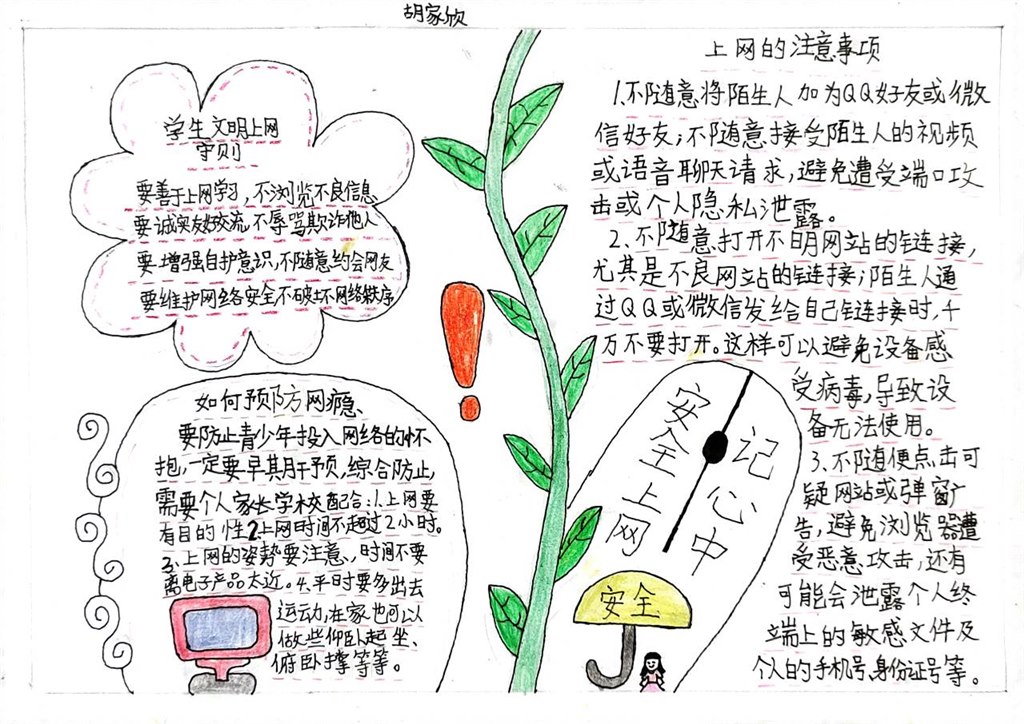 胡家欣
学生文明上网
守则
要善于上网学习,不浏览不良信息
要诚实友好交流,不辱骂欺诈他人
要增强自护意识,不随意约会网友
要维护网络安全不破坏网络秩序
如何预防网瘾
要防止青少年投入网络的怀
抱,一定要早其月干预,综合防止,
需要个人家长学校配合:1.上网要
有目的性2.上网时间不超过2小时。
3、上网的姿势要注意、时间不要
离电子产品太近。4.平时要多出去
运动,在家也可以
做些仰卧起坐、
俯卧撑等等。
上网的注意事项
1.不随意将陌生人加为QQ好友或微
信好友;不随意接受陌生人的视频
或语音聊天请求,避免遭受端口攻
击或个人隐私泄露。
2、不随意打开不明网站的链接,
尤其是不良网站的链接;陌生人通
过QQ或微信发给自己链接时,千
万不要打开。这样可以避免设备感
受病毒,导致设
备无法使用。
3、不随便点击可
疑网站或弹窗广
告,避免浏览器遭
受恶意攻击,还有
可能会泄露个人终
端上的敏感文件及
个人的手机号、身份证号等。
安全上网
记心中
安全